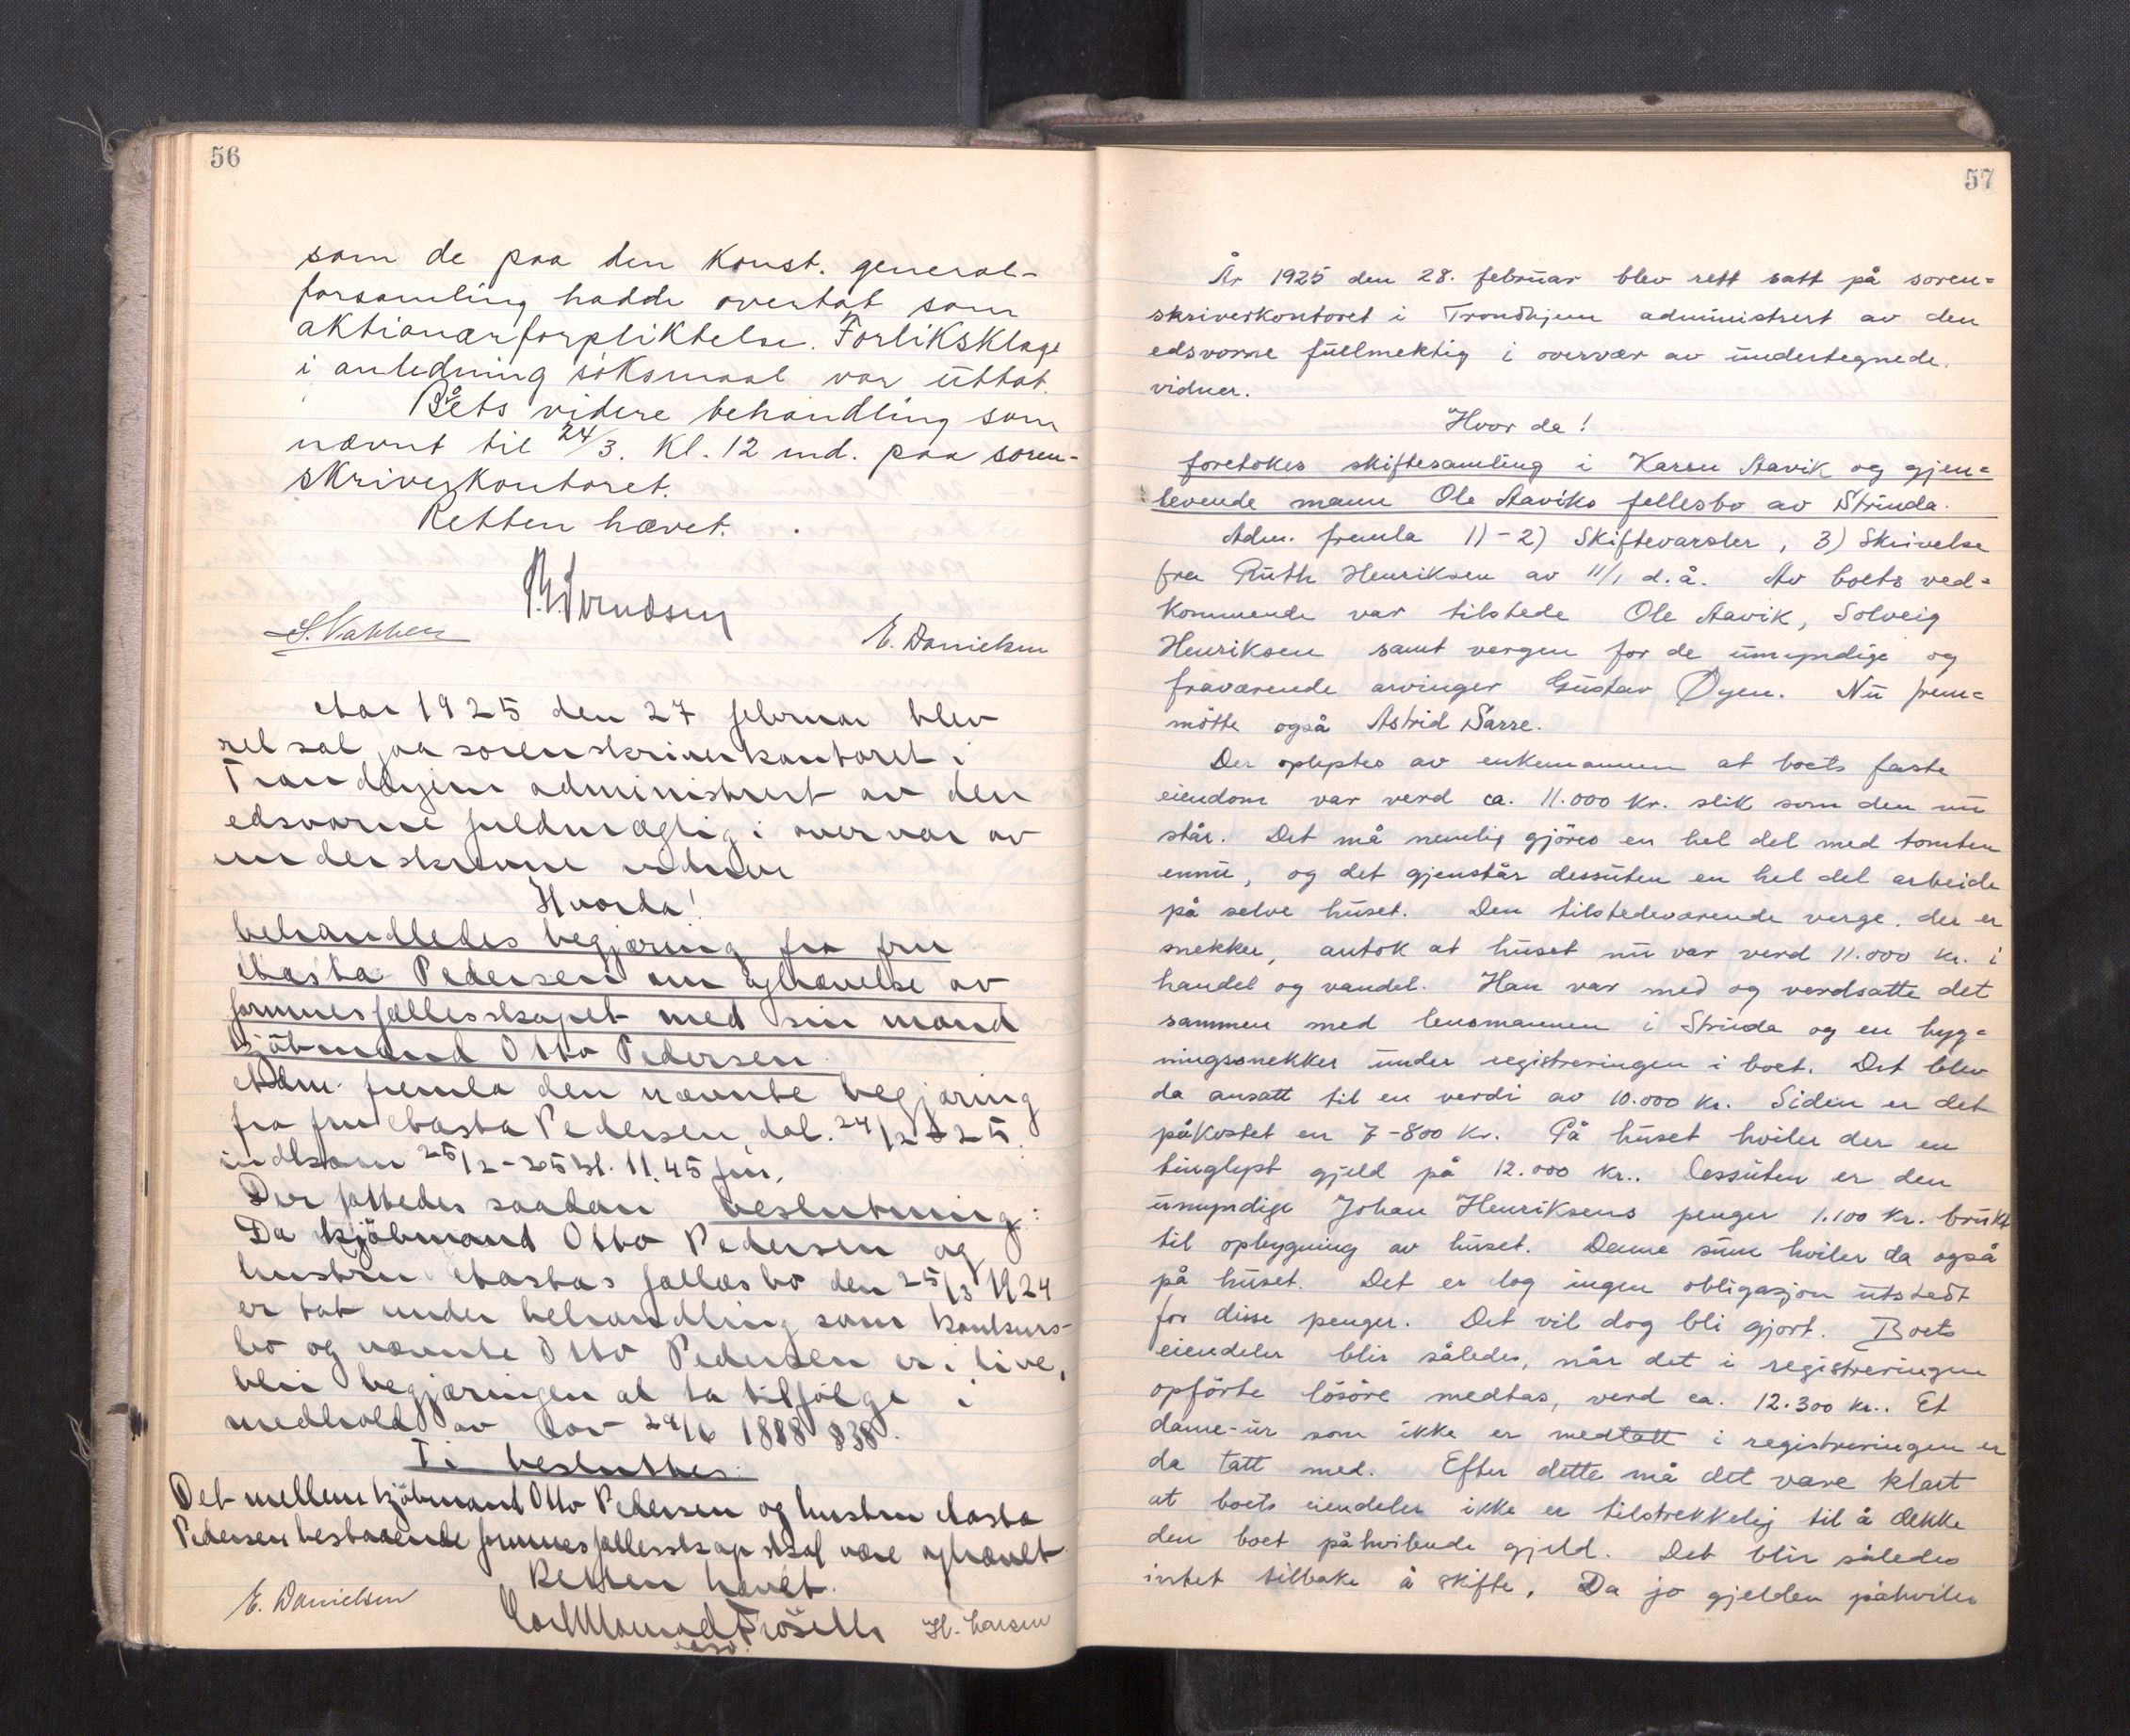 56
som de paa den konst. general-
forsamling hadde overtat som
aktionærforpliktelse. Forliksklage
i anledning söksmaal var uttat.
Boets videre behandling som
nævnt til 24/3. Kl. 12 md. paa soren-
skriverkontoret.
Retten hævet.
E. Danielsen
Aar 1925 den 27 februar blev
ret sat paa sorenskriverkontoret i
Trondhjem administrert av den
edsvorne fuldmægtig i overvær av
underskrevne vidner
Hvorda!
behandledes begjæring fra fru
Aasta Pedersen om ophævelse av
formuesfællesskapet med sin mand
kjöbmand Otto Pedersen
Adm. fremla den nævnte begjæring
fra fru Aasta Pedersen, dat. 24/2-25.
indkom 25/2-25 kl. 11.45 fm.
Der fattedes saadan beslutning:
Da kjöbmand Otto Pedersen og
hustru Aastas fællesbo den 25/3 1924
er tat under behandling som konkurs-
bo og nævnte Otto Pedersen er i live,
blir begjæringen at ta tilfölge i
medhold av Lov 29/6 1888 § 38.
Ti besluttes:
Det mellem kjöbmand Otto Pedersen og hustru Aasta
Pedersen bestaaende formuesfællesskap skal være ophævet
Retten hævet.
E. Danielsen
H. Larsen
57
År 1925 den 28. februar blev rett satt på soren=
skriverkontoret i Trondhjem administrert av den
edsvorne fullmektig i overvær av undertegnede
vidner.
Hvor da!
foretokes skiftesamling i Karen Aavik og gjen=
levende mann Ole Aaviks fellesbo av Strinda.
Adm. fremla 1)-2) Skiftevarsler, 3) Skrivelse
fra Ruth Henriksen av 11/1 d.å. Av boets ved=
kommende var tilstede Ole Aavik, Solveig
Henriksen samt vergen for de umyndige og
fraværende arvinger Gustav Öyen. Nu frem=
mötte også Astrid Sarre.
Der oplystes av enkemannen at boets faste
eiendom var verd ca. 11.000 kr. slik som den nu
står. Det må nemlig gjöres en hel del med tomten
ennu, og det gjenstår dessuten en hel del arbeide
på selve huset. Den tilstedeværende verge, der er
snekker, antok at huset nu var verd 11.000 kr. i
handel og vandel. Han var med og verdsatte det
sammen med lensmannen i Strinda og en byg=
ningssnekker under registreringen i boet. Det blev
da ansatt til en verdi av 10.000 kr. Siden er det
påkostet en 7-800 kr. På huset hviler der en
tinglyst gjeld på 12.000 kr.. Dessuten er den
umyndige Johan Henriksens penger 1.100 kr. brukt
til opbygning av huset. Denne sum hviler da også
på huset. Det er dog ingen obligasjon utstedt
for disse penger. Det vil dog bli gjort. Boets
eiendeler blir således, når det i registreringen
opförte lösöre medtas, verd ca. 12.300 kr.. Et
dame-ur som ikke er medtatt i registreringen er
da tatt med. Efter dette må det være klart
at boets eiendeler ikke er tilstrekkelig til å dekke
den boet påhvilende gjeld. Det blir således
intet tilbake å skifte. Da jo gjelden påhviler